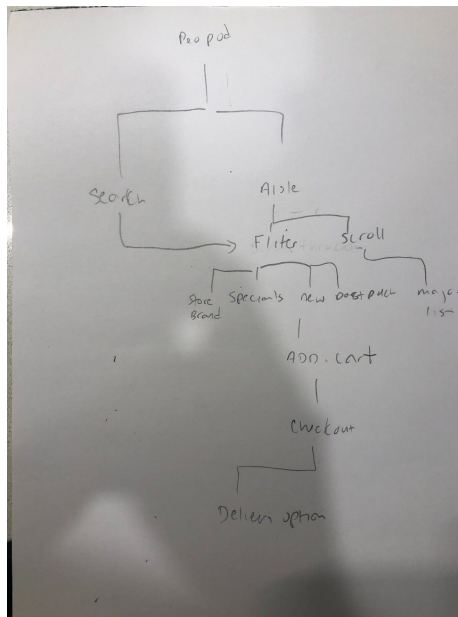 Peapod
Search
Aisle
Fliter
Scroll
Store
Brand
Specials
new
past
ADD. Cart
Checkout
Delivery option